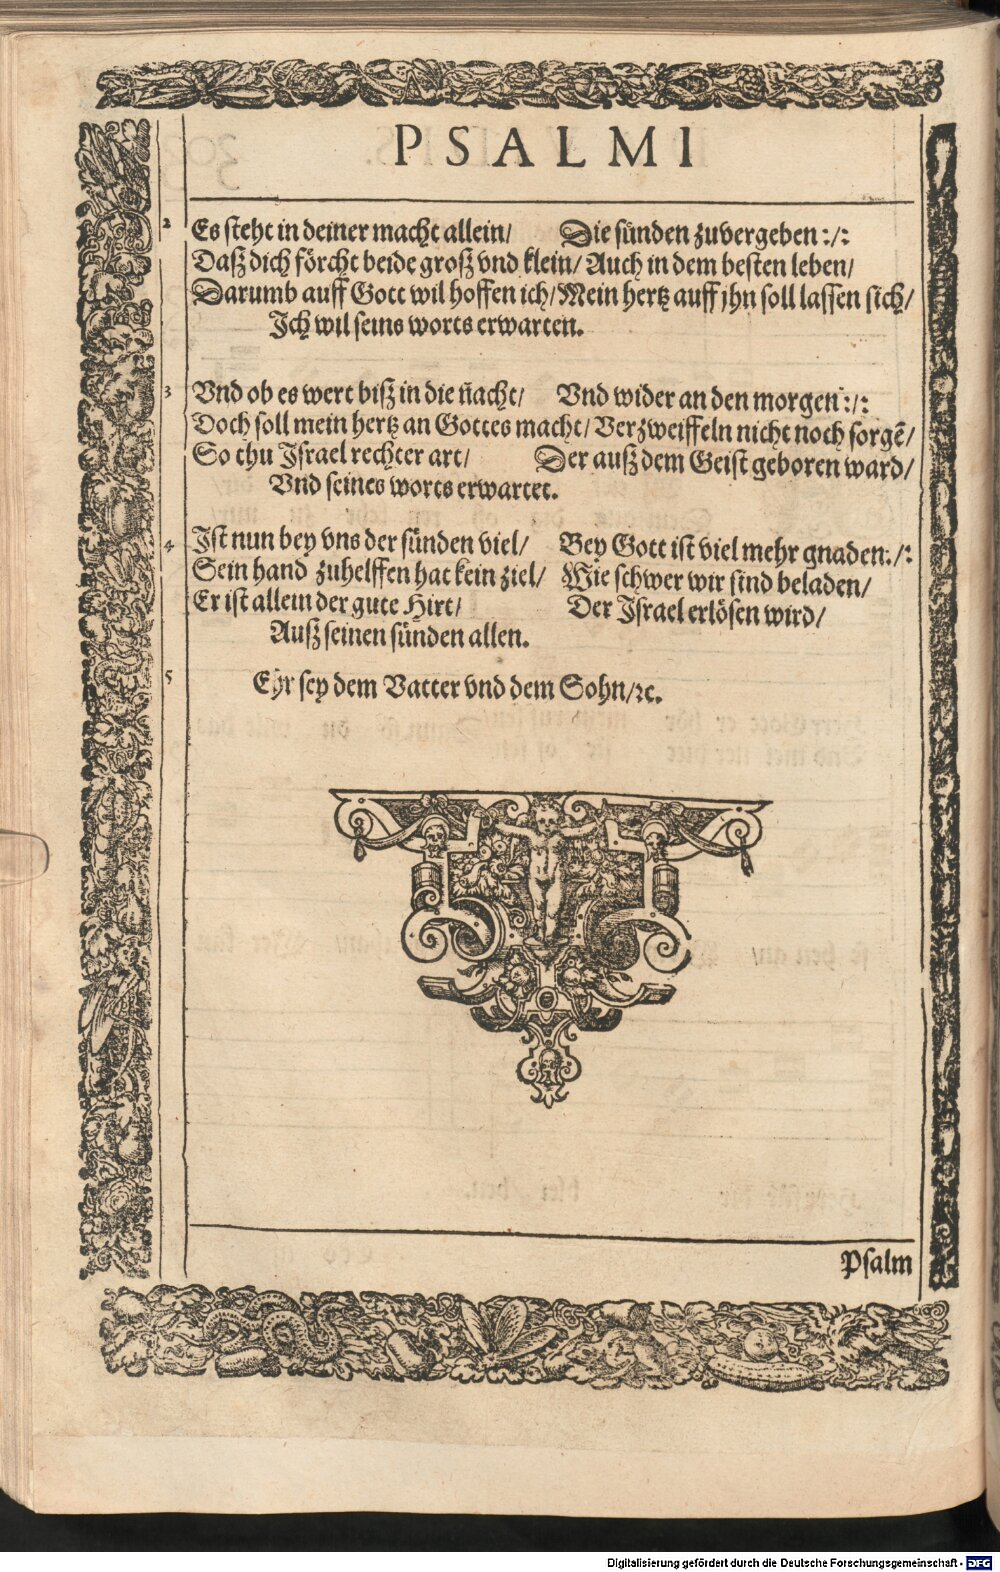 PSALMI
2 Es steht in deiner macht allein/ Die sünden zuvergeben :/:
Daß dich förcht beide groß vnd klein/ Auch in dem besten leben/
Darumb auff Gott wil hoffen ich/ Mein hertz auff jhn soll lassen sich/
Ich wil seins worts erwarten.
3 Vnd ob es wert biß in die nacht/ Vnd wider an den morgen :/:
Doch soll mein hertz an Gottes macht/ Verzweiffeln nicht noch sorgẽ/
So thu Israel rechter art/ Der auß dem Geist geboren ward/
Vnd seines worts erwartet.
4 Ist nun bey vns der sünden viel/ Bey Gott ist viel mehr gnaden :/:
Sein hand zuhelffen hat kein ziel/ Wie schwer wir sind beladen/
Er ist allein der gute Hirt/ Der Israel erlösen wird/
Auß seinen sünden allen.
5 Ehr sey dem Vatter vnd dem Sohn/ꝛc.
Psalm
Digitalisierung gefördert durch die Deutsche Forschungsgemeinschaft - DFG